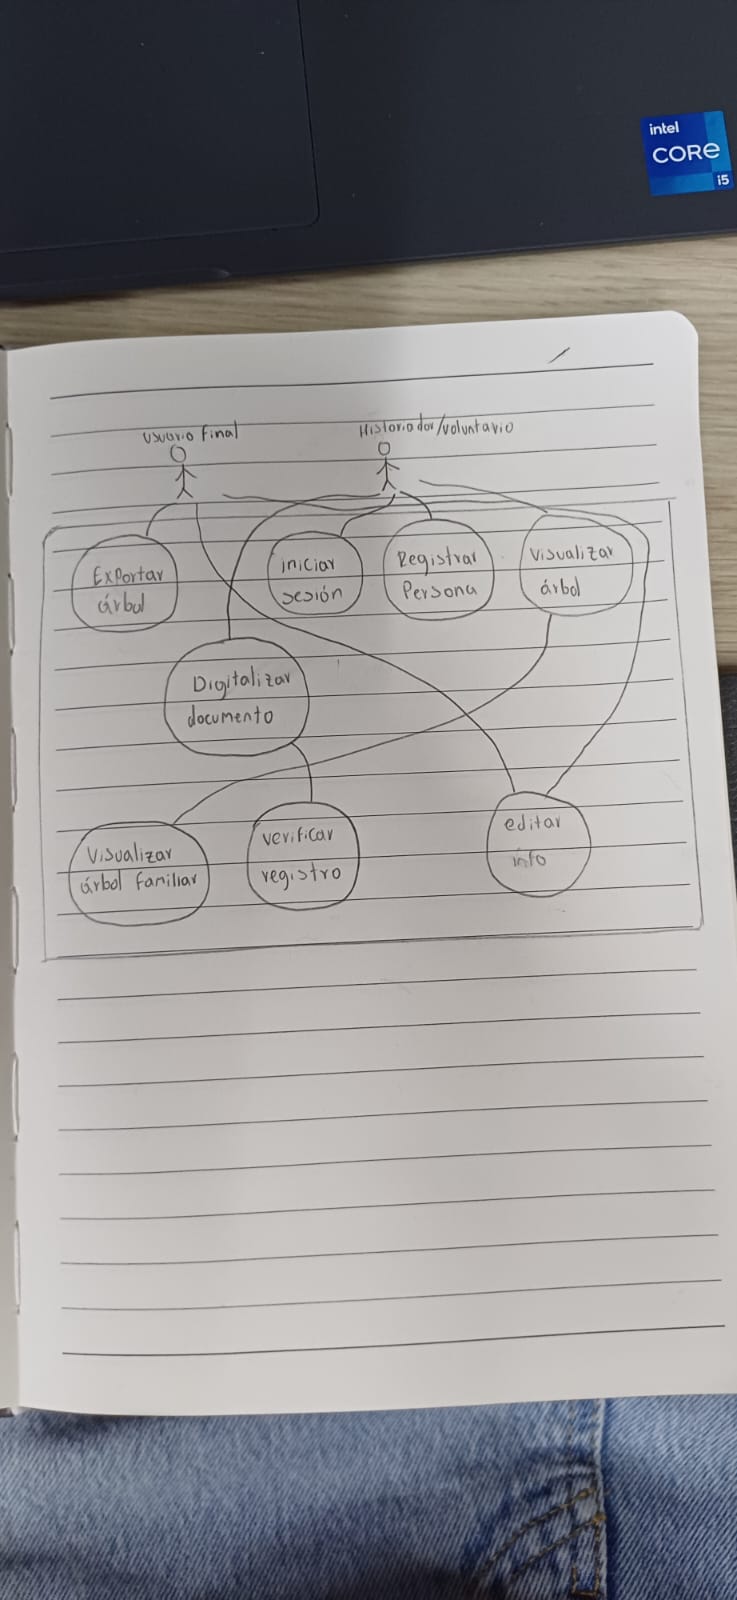 intel
CORE
i5
Usuario final
Historiador/voluntario
Exportar
árbol
iniciar
sesión
Registrar
Persona
Visualizar
árbol
Digitalizar
documento
Visualizar
árbol familiar
verificar
registro
editar
info